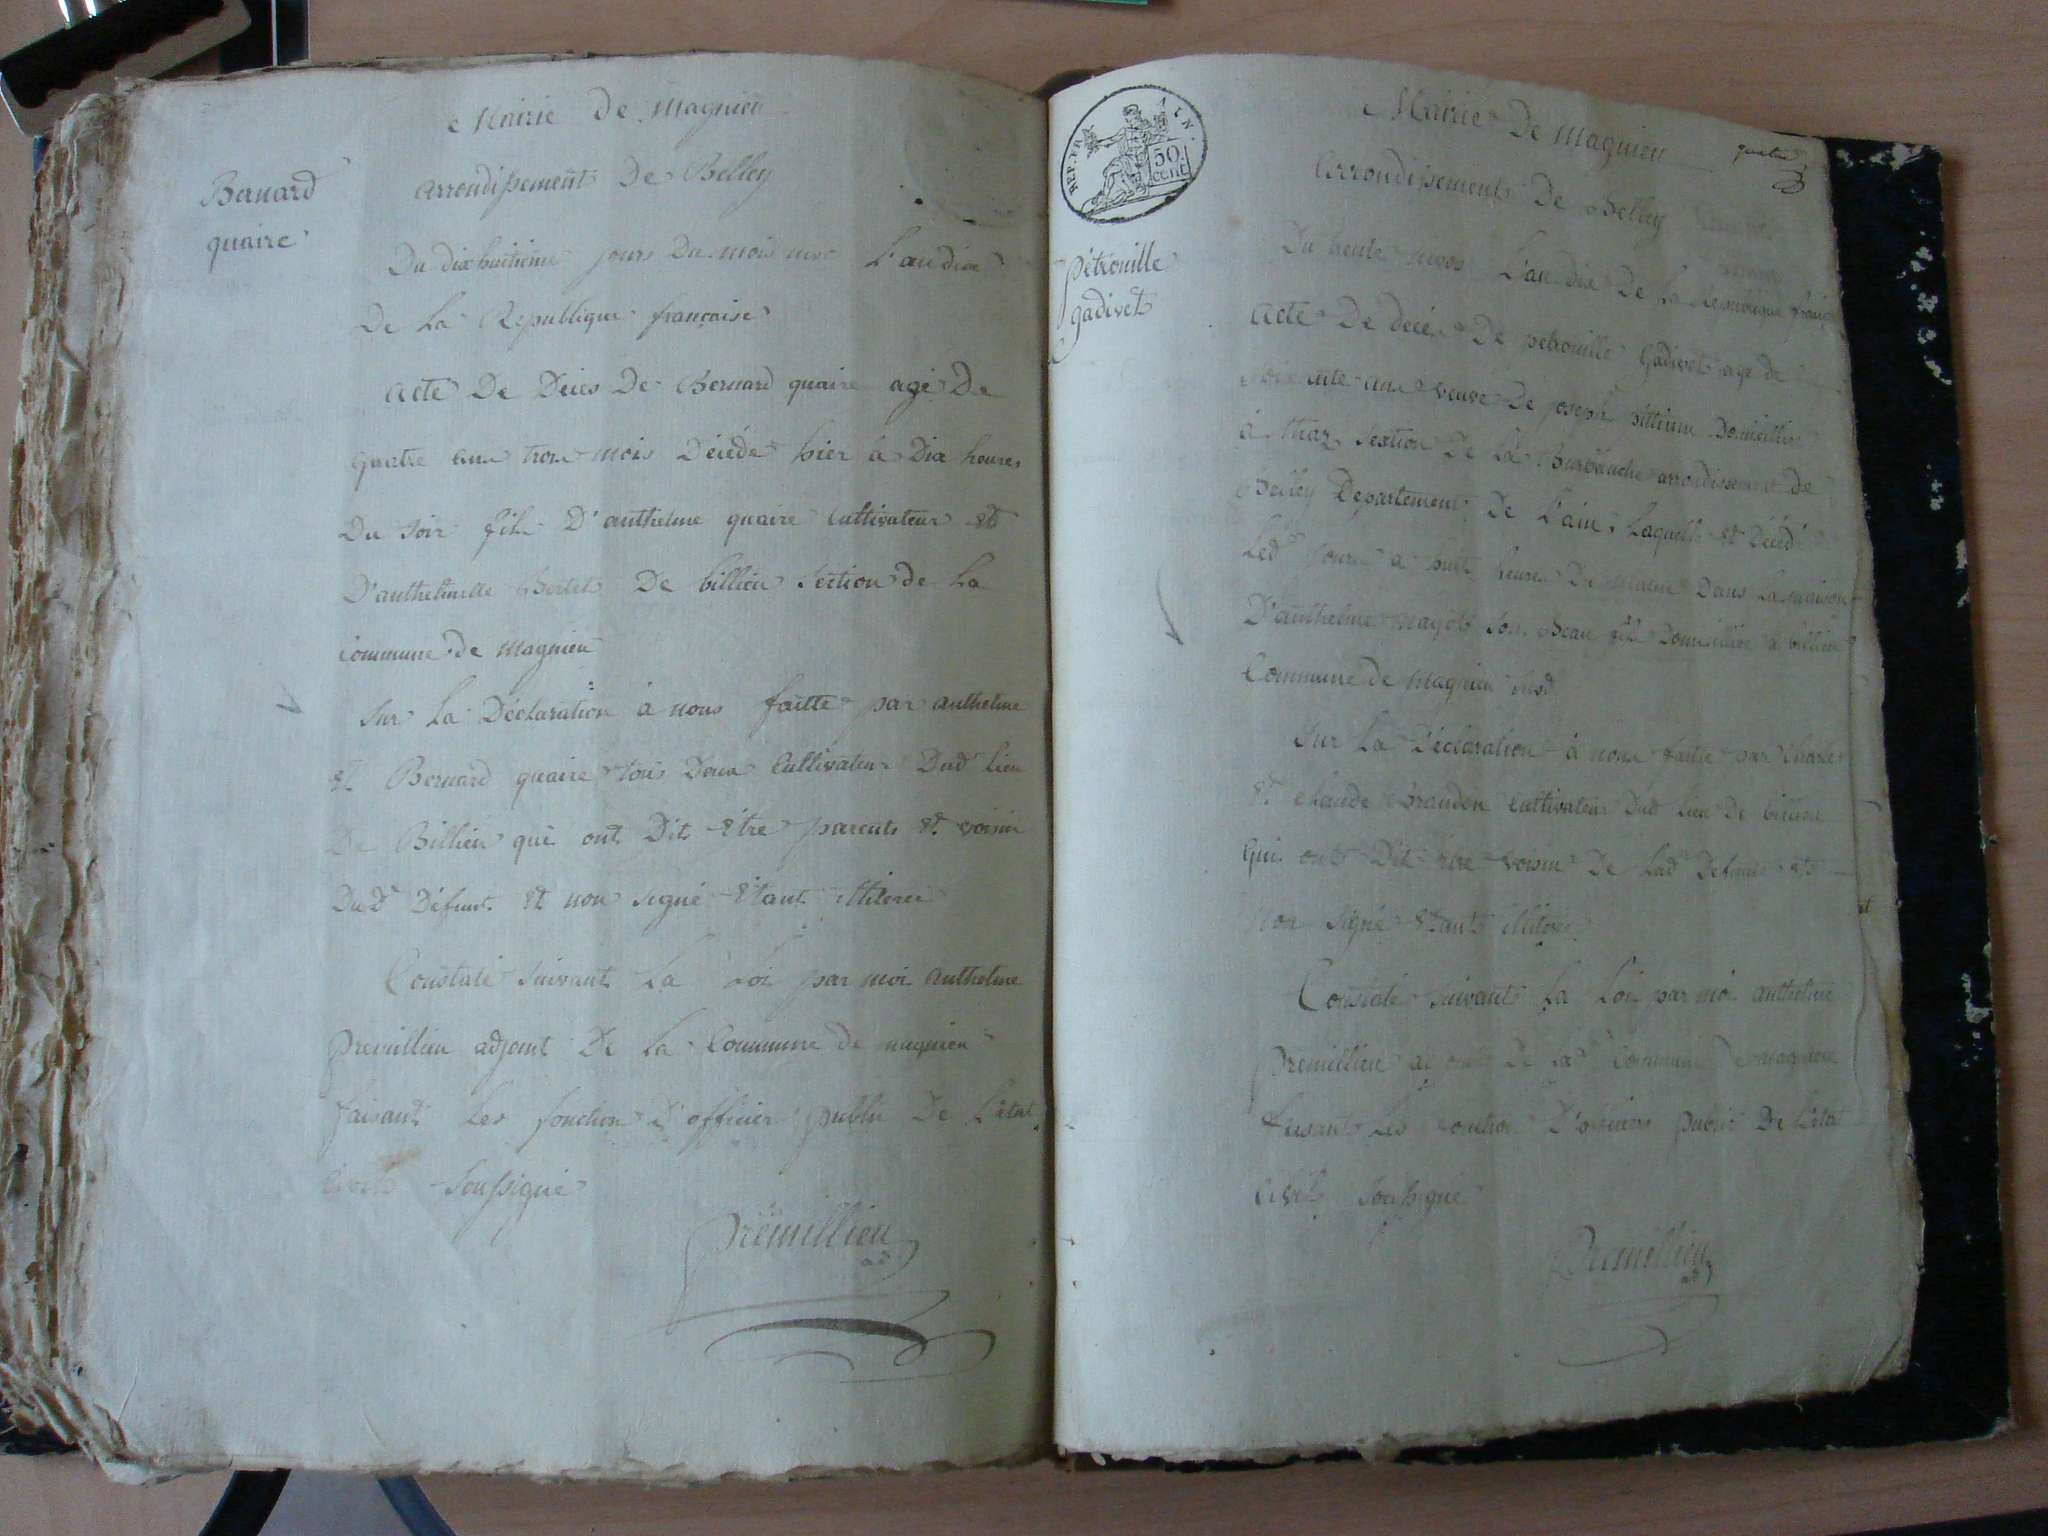 Mairie de Magnieu
Arrondissement De Belley
Bernard
quaire
Du dixhuitieme jours Du mois nivo L'an dix
De la Republique française
Acte De Déces De Bernard quaire agé De
quatre ans trois mois Décédé hier à Dix heures
Du soir fils D'anthelme quaire Cultivateur et
D'anthelmette Bertet De billieu Section de La
commune de Magnieu
Sur La Déclaration à nous faitte par anthelme
et Bernard quaire tous Deux Cultivateur Dud lieu
De Billieu qui ont Dit être parents et voisin
Dud Défunt et non signé étant illiterez
Constaté suivant La Loi par moi anthelme
premillieu adjoint De La Commune de magnieu
faisant Les fonction D'officier public De L'état
Civile Soussigné
premillieu
ad
REP. FRA. AIN.
50.
CENT.
Mairie De Magnieu
quatre
Arrondissement De Belley
pétrouille
gadivet
Du trente nivos L'an dix De La Republique franç
Acte De décé De petrouille Gadivet agé de
soixante ans veuve De joseph Domicillié
à thaz Section De La Burbanche arrondissement de
Belley Departement De L'ain, Laquelle et décéd
Led jours a huit heures De Matin Dans La maison
D'anthelme mayot son Beau fils Domicillié a billieu
Commune de Magnieu susd
Sur La Déclaration à nous faitte par Charle
et claude Cultivateur Dud lieu De billieu
Qui ont Dit être voisin De Lad Defunte et
Non signé étant illiterez
Constaté suivant La Loi par moi anthelme
premillieu adjoint De La Commune De magnieu
faisant Les fonction D'officiers public De L'état
Civile Soussigné
Premillieu
ad